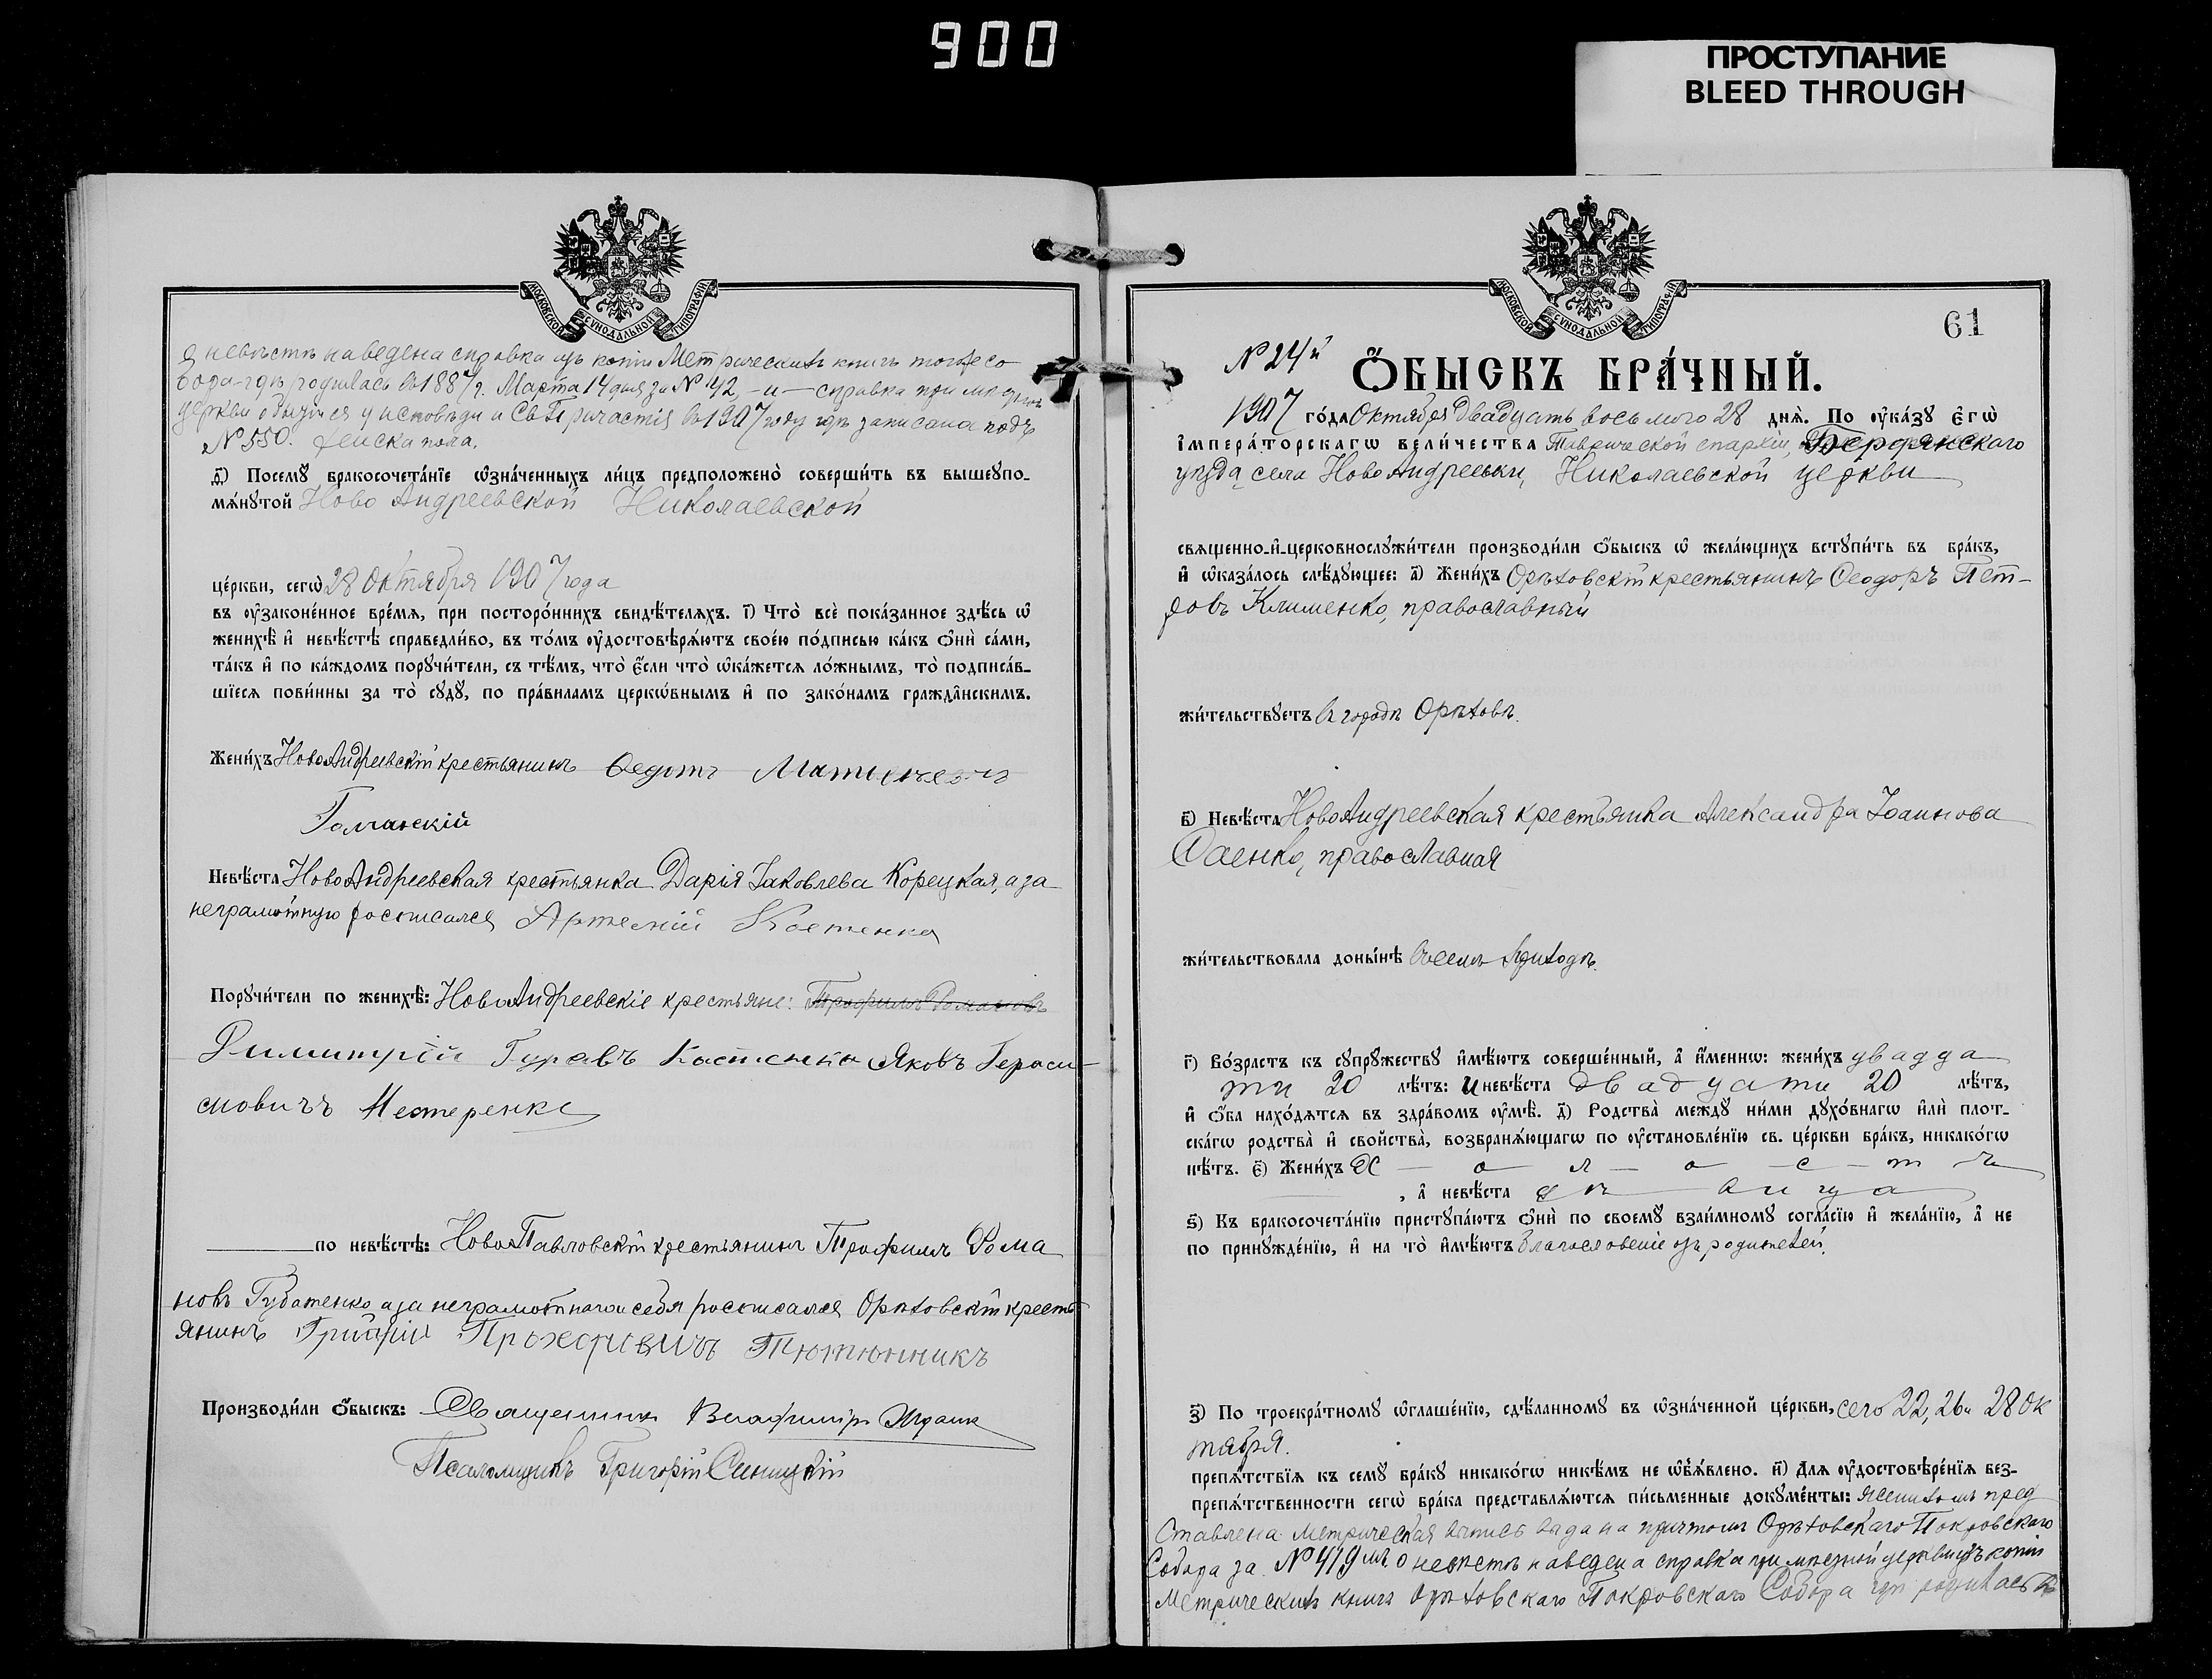 900
ПРОСТУПАНИЕ
BLEED THROUGH
МОСКОВСКОЙ СѴНОДАЛЬНОЙ ТИПОГРАФІИ
О невѣстѣ наведена справка изъ копіи Метрическихъ книгъ того же со
бора гдѣ родилась въ 1887 г. Марта 14 дня за № 42, —и— справка при мѣстной
церкви о бытіи ея у исповѣди и Св Причастія въ 1907 году гдѣ записана подъ
№ 550. женска пола.
д҃) Посемꙋ̀ бракосочета́нїе ѡ҆зна́ченныхъ ли́цъ предположено̀ соверши́ть въ вышеꙋпо-
мѧ́нꙋтой Ново Андреевской Николаевской
це́ркви, сегѡ̀ 28 Октября 1907 года
въ ᲂу҆законе́нное вре́мѧ, при посторо́ннихъ свидѣ́телѧхъ. і҃) Что̀ всѐ пока́занное здѣ́сь ѡ҆
женихѣ̀ и҆ невѣ́стѣ справедли́во, въ то́мъ ᲂу҆достовѣрѧ́ютъ свое́ю по́дписью ка́къ ѻ҆нѝ са́ми,
та́къ и҆ по ка́ждомъ порꙋчи́тели, съ тѣ́мъ, что̀ є҆́сли что̀ ѡ҆ка́жетсѧ ло́жнымъ, то̀ подписа́в-
шїесѧ пови́нны за то̀ сꙋдꙋ̀, по пра́виламъ церкѡ́внымъ и҆ по зако́намъ гражда̂нскимъ.
Жени́хъ НовоАндреевскій крестьянинъ Ѳедотъ Матвеевич
Голчанскій
Невѣ́ста НовоАндреевская крестьянка Дарія Іаковлева Корецкая, а за
неграмотную росписался Артемій Костенко
Порꙋчи́тели по женихѣ̀: НовоАндреевскіе крестьяне: Трофимъ Романовъ
Димитрій Гуравъ Костенко Яковъ Гераси-
мовичъ Нестеренко
по невѣ́стѣ: НовоПавловскій крестьянинъ Трофимъ Рома
новъ Губатенко, а за неграмотнаго и себя росписался Орѣховскій кресть
янинъ Прохоровичъ Тютюнникъ
Производи́ли ѻ҆́быскъ: Священникъ Владиміръ
Псаломщикъ Григорій Синицкій
МОСКОВСКОЙ СѴНОДАЛЬНОЙ ТИПОГРАФІИ
61
№ 24й
Ѻ҆́БЫСКЪ БРА́ЧНЫЙ.
1907 го́да Октября двадцать восьмого 28 днѧ̀. По ᲂу҆ка́зꙋ є҆гѡ̀
і҆мпера́торскагѡ вели́чества Таврической епархіи, Бердянскаго
уѣзда, села НовоАндреевки, Николаевской церкви
свѧщенно-и҆-церковнослꙋжи́тели производи́ли ѻ҆́быскъ ѡ҆ жела́ющихъ встꙋпи́ть въ бра́къ,
и҆ ѡ҆каза́лось слѣ́дꙋющее: а҃) Жени́хъ Орѣховскій крестьянинъ Ѳеодоръ Пет-
ровъ Клименко, православный
жи́тельствꙋетъ въ городѣ Орѣховѣ.
в҃) Невѣ́ста НовоАндреевская крестьянка Александра Іоаннова
Саенко, православная
жи́тельствовала доны́нѣ въ семъ приходѣ.
г҃) Во́зрастъ къ сꙋпрꙋ́жествꙋ и҆мѣ́ютъ соверше́нный, а҆ и҆́меннѡ: жени́хъ двадца
ти 20 лѣ́тъ: и невѣ́ста двадцати 20 лѣ́тъ,
и҆ ѻ҆́ба нахо́дѧтсѧ въ здра́вомъ ᲂу҆мѣ̀. д҃) Родства̀ междꙋ̀ ни́ми дꙋхо́внагѡ и҆лѝ плот-
ска́гѡ родства̀ и҆ свойства̀, возбранѧ́ющагѡ по ᲂу҆становле́нїю св. це́ркви бра́къ, никако́гѡ
нѣ́тъ. є҃) Жени́хъ холостъ
, а҆ невѣ́ста дѣвица
ѕ҃) Къ бракосочета́нїю пристꙋпа́ютъ ѻ҆нѝ по своемꙋ̀ взаи́мномꙋ согла́сїю и҆ жела́нїю, а҆ не
по принꙋжде́нїю, и҆ на то̀ и҆мѣ́ютъ благословеніе отъ родителей.
з҃) По троекра́тномꙋ ѡ҆глаше́нїю, сдѣ́ланномꙋ въ ѡ҆зна́ченной це́ркви, сего 22, 26 и 28 Ок
тября.
препѧ́тствїѧ къ семꙋ̀ бра́кꙋ никако́гѡ никѣ́мъ не ѡ҆б̾ѧ́влено. и҃) Длѧ ᲂу҆достовѣре́нїѧ без-
препѧ́тственности сегѡ̀ бра́ка представлѧ́ютсѧ пи́сьменные докꙋме́нты: женихомъ пред
ставлена метрическая выпись выдана причтомъ Орѣховскаго Покровскаго
Собора за № 419 мъ о невѣстѣ наведена справка при мѣстной церкви изъ копіи
Метрическихъ книгъ Орѣховскаго Покровскаго Собора гдѣ родилась въ